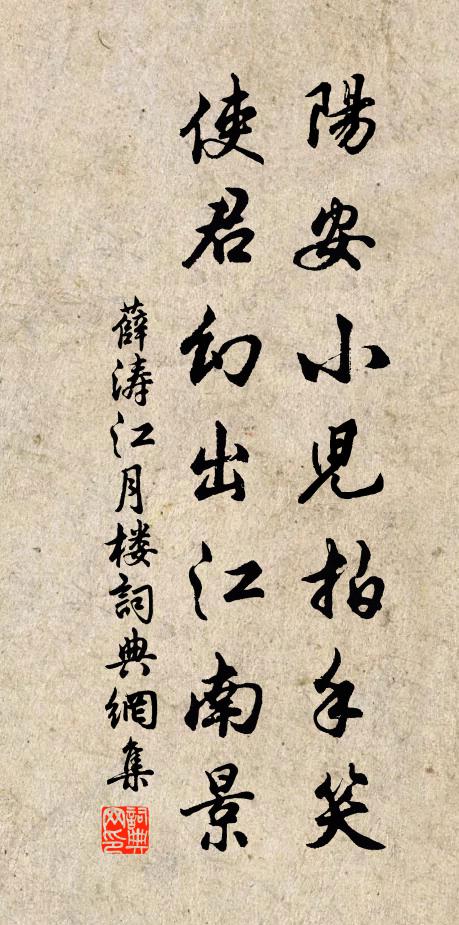 陽安小兒拍手笑
使君幻出江南景
薛濤江月楼詞典網集
詞典网印